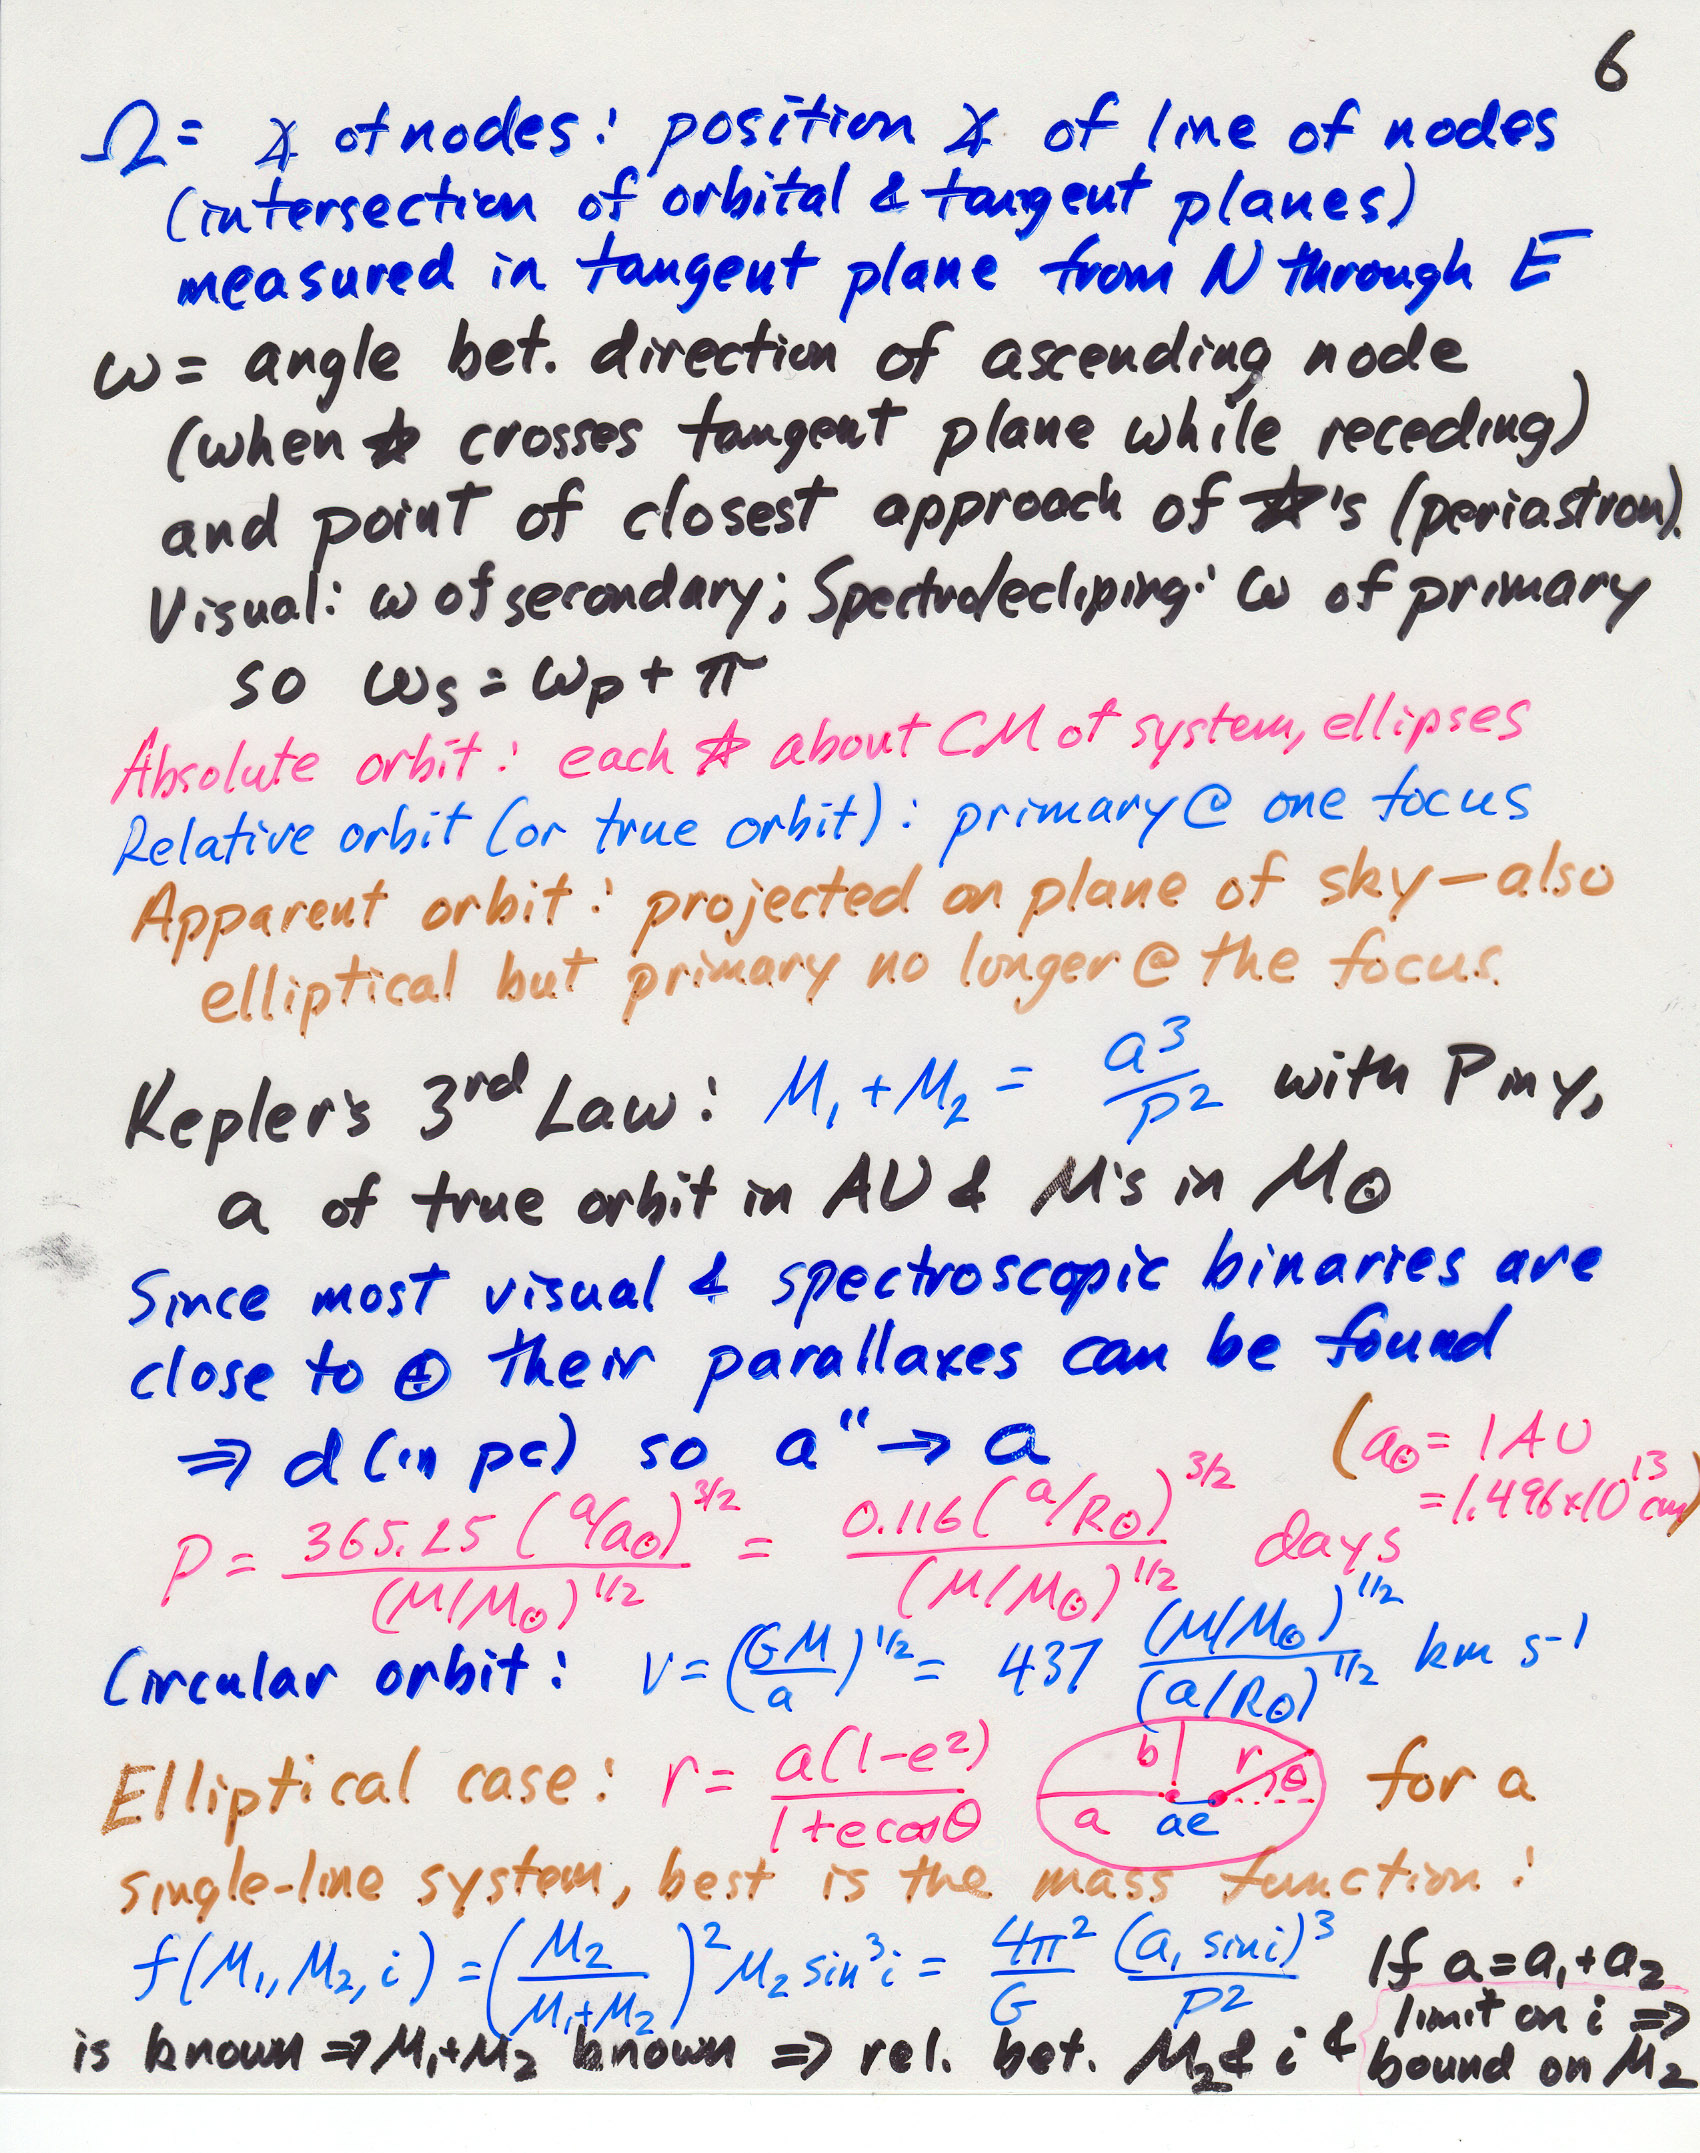 6
Ω = ∡ of nodes: position ∡ of line of nodes
(intersection of orbital & tangent planes)
measured in tangent plane from N through E
ω = angle bet. direction of ascending node
(when ☆ crosses tangent plane while receding)
and point of closest approach of ☆'s (periastron).
Visual: ω of secondary; Spectro/ecliping: ω of primary
so ωs = ωp + π
Absolute orbit: each ☆ about CM of system, ellipses
Relative orbit (or true orbit): primary @ one focus
Apparent orbit: projected on plane of sky – also
elliptical but primary no longer @ the focus.
Kepler's 3rd Law: M₁ + M₂ = a³/P² with P in y,
a of true orbit in AU & M's in M⊙
Since most visual & spectroscopic binaries are
close to ⊕ their parallaxes can be found
⇒ d (in pc) so a" → a (a⊙ = 1 AU
= 1.496×10¹³ cm)
P = 365.25 (a/a⊙)^3/2 / (M/M⊙)^1/2 = 0.116 (a/R⊙)^3/2 / (M/M⊙)^1/2 days
Circular orbit: v = (GM/a)^1/2 = 437 (M/M⊙)^1/2 / (a/R⊙)^1/2 km s⁻¹
Elliptical case: r = a(1-e²) / 1+e cosθ b r θ a ae for a
single-line system, best is the mass function:
f(M₁, M₂, i) = (M₂ / M₁+M₂)² M₂ sin³i = 4π²/G (a₁ sin i)³/P² If a = a₁ + a₂
is known ⇒ M₁+M₂ known ⇒ rel. bet. M₂ & i & limit on i ⇒
bound on M₂